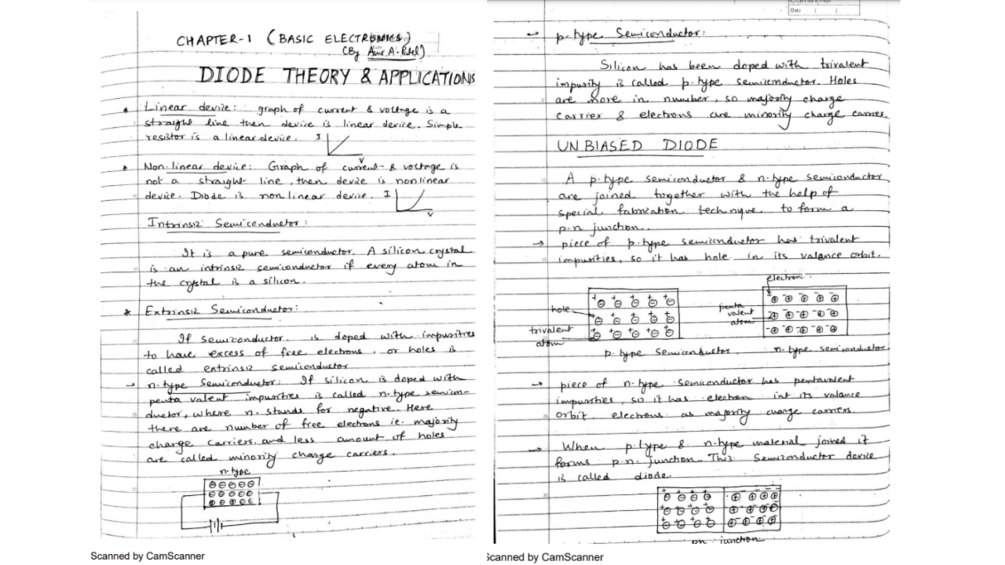 CHAPTER-1 (BASIC ELECTRONICS)
(By A. Patel)
DIODE THEORY & APPLICATIONS
• Linear device: graph of current & voltage is a
straight line then device is linear device. Simple
resistor is a linear device. I
V
• Non-linear device: Graph of current & voltage is
not a straight line, then device is nonlinear
device. Diode is non linear device. I
V
Intrinsic Semiconductor:
It is a pure semiconductor. A silicon crystal
is an intrinsic semiconductor if every atom in
the crystal is a silicon.
* Extrinsic Semiconductor:
If semiconductor is doped with impurities
to have excess of free electrons, or holes is
called extrinsic semiconductor
→ n-type Semiconductor: If silicon is doped with
penta valent impurities is called n-type semicon-
ductor, where n. stands for negative. Here
there are number of free electrons ie. majority
charge carriers, and less amount of holes
are called minority charge carriers.
n-type
Scanned by CamScanner
Date / /
→ p-type Semiconductor:
Silicon has been doped with trivalent
impurity is called p-type semiconductor. Holes
are more in number, so majority charge
carrier & electrons are minority charge carrier.
UNBIASED DIODE
A p-type semiconductor & n-type semiconductor
are joined together with the help of
special fabrication technque to form a
p-n junction.
→ piece of p-type semiconductor has trivalent
impurities, so it has hole in its valance orbit.
electron
hole
penta
valent
atom
trivalent
atom
p-type Semiconductor n-type semiconductor
→ piece of n-type Semiconductor has pentavalent
impurities, so it has electron int its valance
orbit. electrons as majority charge carriers
→ When p-type & n-type material joined it
forms p-n junction. This Semiconductor device
is called diode.
pn junction
Scanned by CamScanner